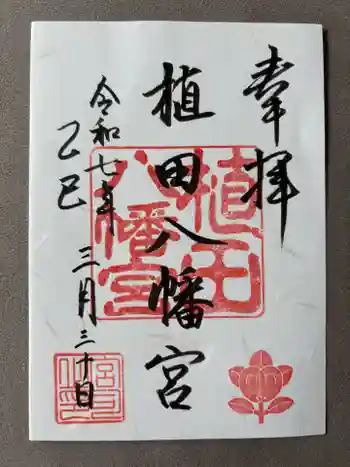 奉拝
植田八幡宮
令和七年
乙巳
三月三十日
植田
八幡宮